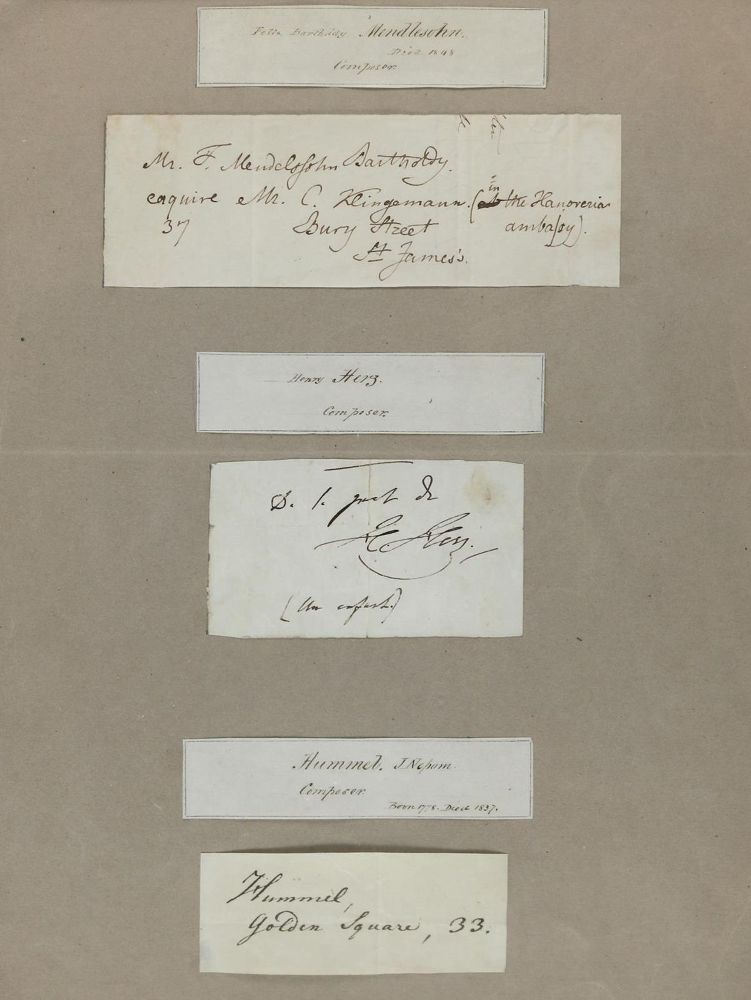 Felix Bartholdy Mendlesohn.
Died 1848
Composer
Mr. F. Mendelssohn Bartholdy.
enquire Mr. C. Klingemann. (in the Hanoveria
37 Bury Street ambassy).
St James's.
Henry Herz.
Composer.
de
H. Herz.
(Un
Hummel. J. Nepom
Composer
Born 1778. Died 1837.
Hummel,
Golden Square, 33.